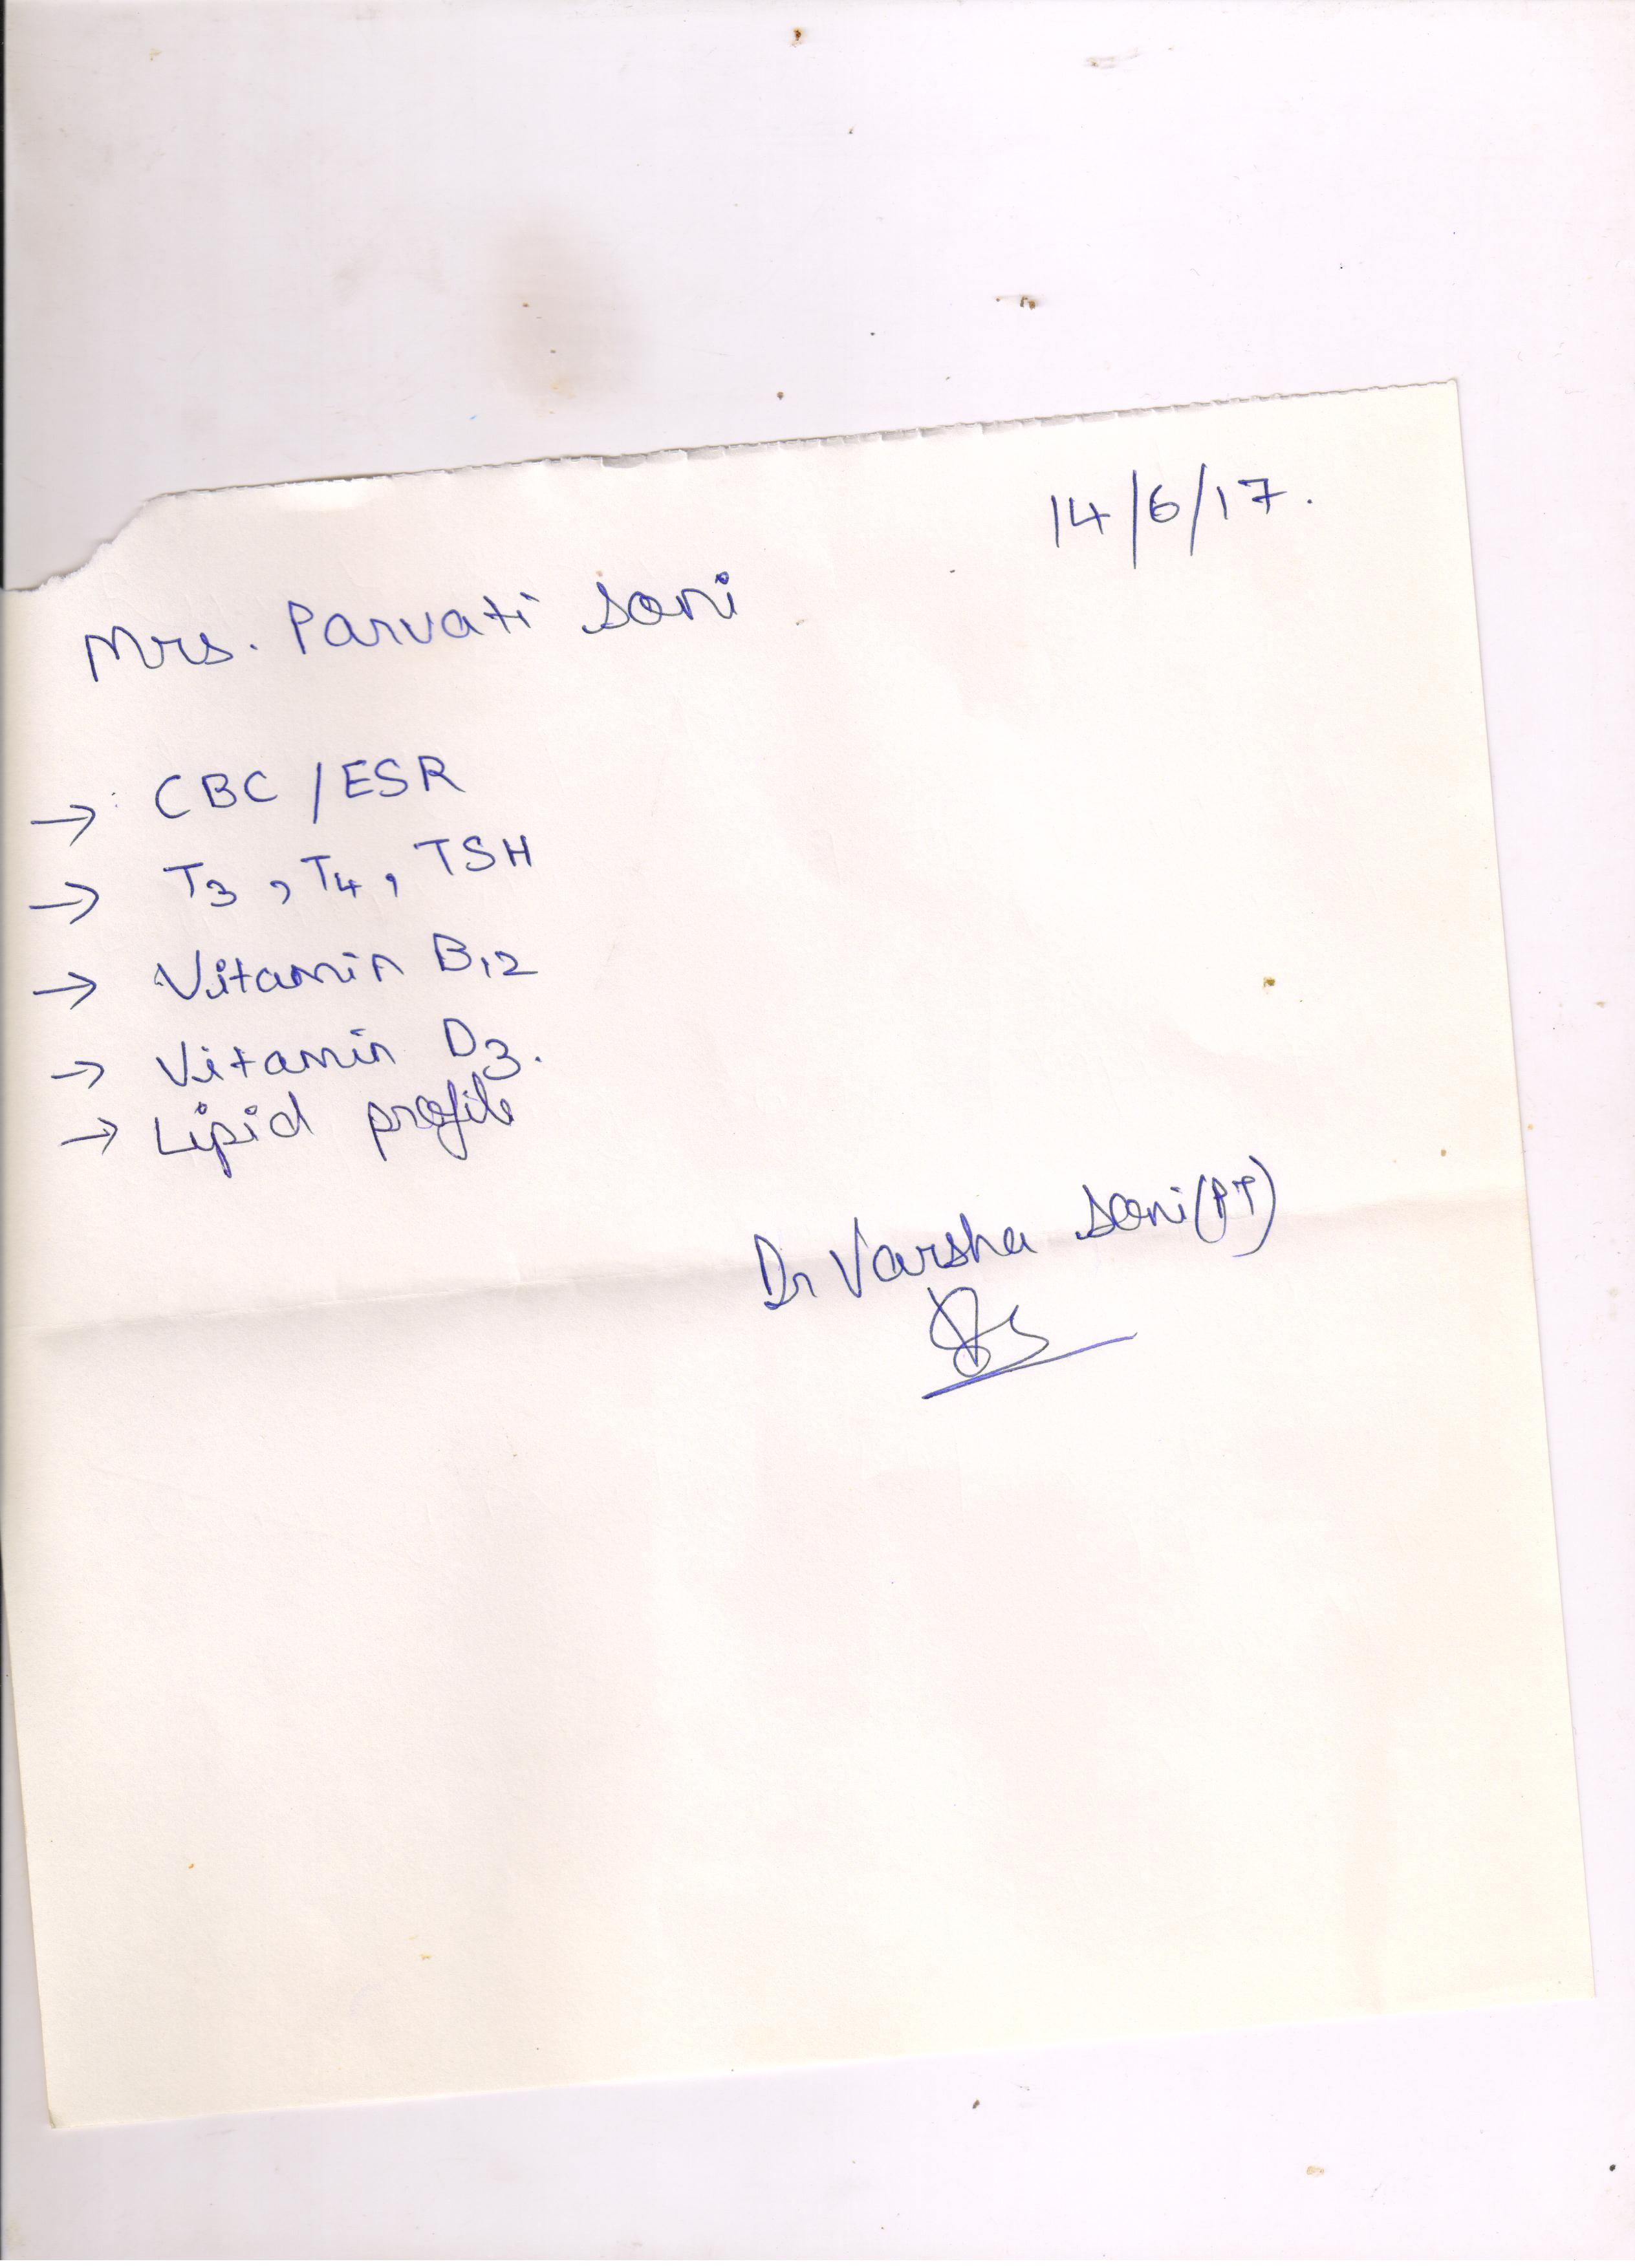 14/6/17.
Mrs. Parvati Soni
→ CBC / ESR
→ T3, T4, TSH
→ Vitamin B12
→ Vitamin D3.
→ Lipid profile
Dr Varsha Soni (PT)